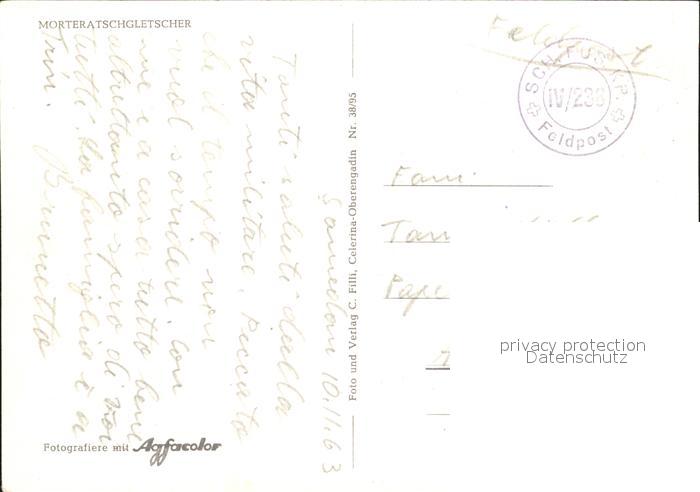 MORTERATSCHGLETSCHER
Samedan 10.11.63
Tanti saluti dalla
vita militare. Peccato
che il tempo non
vuol sorridere con
me e a casa tutto bene
altrettanto spero di voi
tutti. La famiglia è a
Trin. Brunetta
Fotografiere mit Agfacolor
Foto und Verlag C. Filli, Celerina-Oberengadin Nr. 38/95
Feldpost
SCH. FUS. KP.
IV/236
Feldpost
Fam
Tam
Pape
privacy protection
Datenschutz